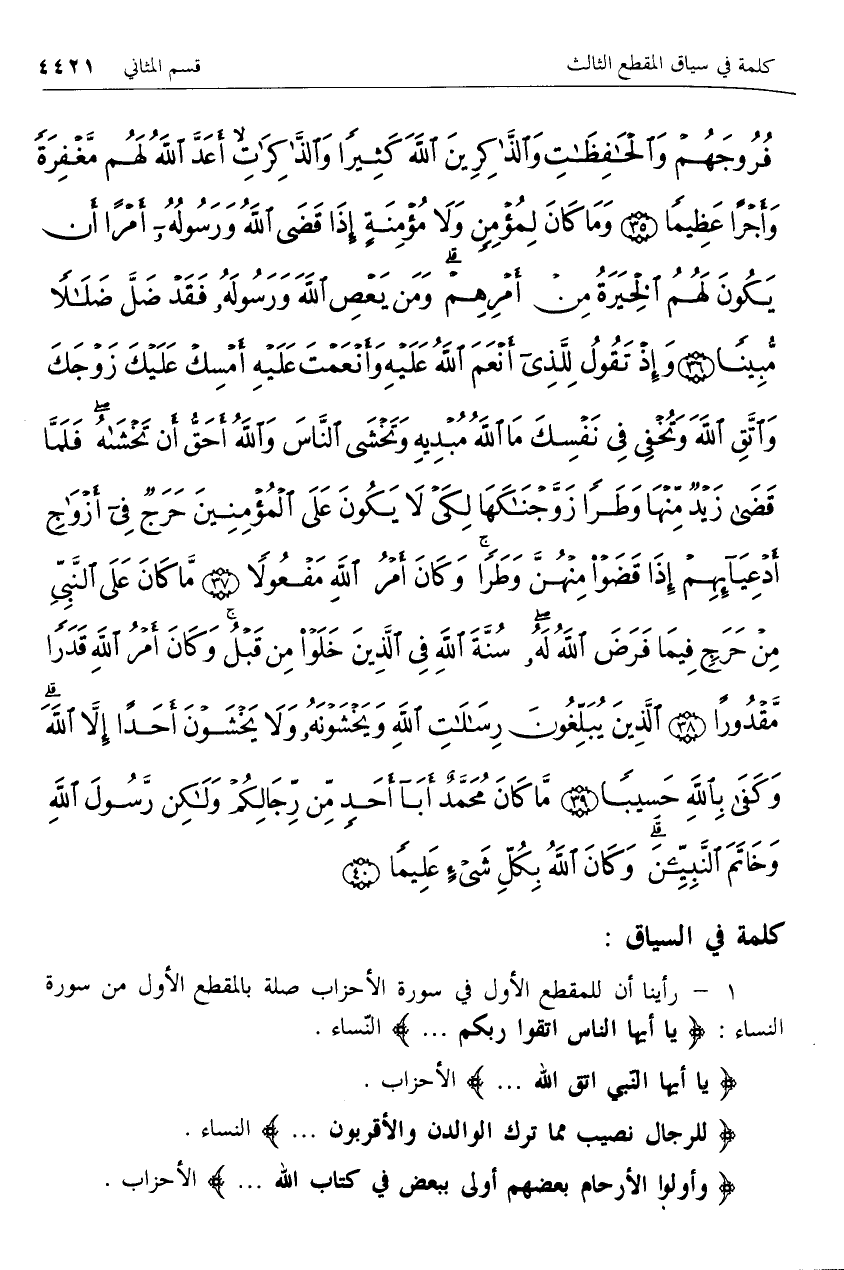 كلمة في سياق المقطع الثالث قسم المثاني ٤٤٢١
فُرُوجَهُمْ وَالْحَافِظَاتِ وَالذَّاكِرِينَ اللَّهَ كَثِيرًا وَالذَّاكِرَاتِ أَعَدَّ اللَّهُ لَهُم مَّغْفِرَةً
وَأَجْرًا عَظِيمًا ﴿٣٥﴾ وَمَا كَانَ لِمُؤْمِنٍ وَلَا مُؤْمِنَةٍ إِذَا قَضَى اللَّهُ وَرَسُولُهُ أَمْرًا أَن
يَكُونَ لَهُمُ الْخِيَرَةُ مِنْ أَمْرِهِمْ ۗ وَمَن يَعْصِ اللَّهَ وَرَسُولَهُ فَقَدْ ضَلَّ ضَلَالًا
مُّبِينًا ﴿٣٦﴾ وَإِذْ تَقُولُ لِلَّذِي أَنْعَمَ اللَّهُ عَلَيْهِ وَأَنْعَمْتَ عَلَيْهِ أَمْسِكْ عَلَيْكَ زَوْجَكَ
وَاتَّقِ اللَّهَ وَتُخْفِي فِي نَفْسِكَ مَا اللَّهُ مُبْدِيهِ وَتَخْشَى النَّاسَ وَاللَّهُ أَحَقُّ أَن تَخْشَاهُ ۖ فَلَمَّا
قَضَىٰ زَيْدٌ مِّنْهَا وَطَرًا زَوَّجْنَاكَهَا لِكَيْ لَا يَكُونَ عَلَى الْمُؤْمِنِينَ حَرَجٌ فِي أَزْوَاجِ
أَدْعِيَائِهِمْ إِذَا قَضَوْا مِنْهُنَّ وَطَرًا ۚ وَكَانَ أَمْرُ اللَّهِ مَفْعُولًا ﴿٣٧﴾ مَّا كَانَ عَلَى النَّبِيِّ
مِنْ حَرَجٍ فِيمَا فَرَضَ اللَّهُ لَهُ ۖ سُنَّةَ اللَّهِ فِي الَّذِينَ خَلَوْا مِن قَبْلُ ۚ وَكَانَ أَمْرُ اللَّهِ قَدَرًا
مَّقْدُورًا ﴿٣٨﴾ الَّذِينَ يُبَلِّغُونَ رِسَالَاتِ اللَّهِ وَيَخْشَوْنَهُ وَلَا يَخْشَوْنَ أَحَدًا إِلَّا اللَّهَ ۗ
وَكَفَىٰ بِاللَّهِ حَسِيبًا ﴿٣٩﴾ مَّا كَانَ مُحَمَّدٌ أَبَا أَحَدٍ مِّن رِّجَالِكُمْ وَلَٰكِن رَّسُولَ اللَّهِ
وَخَاتَمَ النَّبِيِّينَ ۗ وَكَانَ اللَّهُ بِكُلِّ شَيْءٍ عَلِيمًا ﴿٤٠﴾
كلمة في السياق :
١ - رأينا أن للمقطع الأول في سورة الأحزاب صلة بالمقطع الأول من سورة
النساء : ﴿ يا أيها الناس اتقوا ربكم ... ﴾ النّساء .
﴿ يا أيها النّبي اتق الله ... ﴾ الأحزاب .
﴿ للرجال نصيب مما ترك الوالدن والأقربون ... ﴾ النساء .
﴿ وأولوا الأرحام بعضهم أولى ببعض في كتاب الله ... ﴾ الأحزاب .